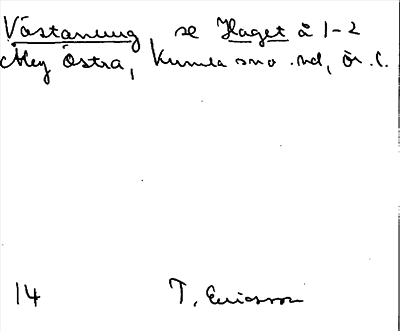 Västanung, se Haget å 1-2
Åby Östra, Kumla sn o. hd, Ör. l.
14 T. Ericsson